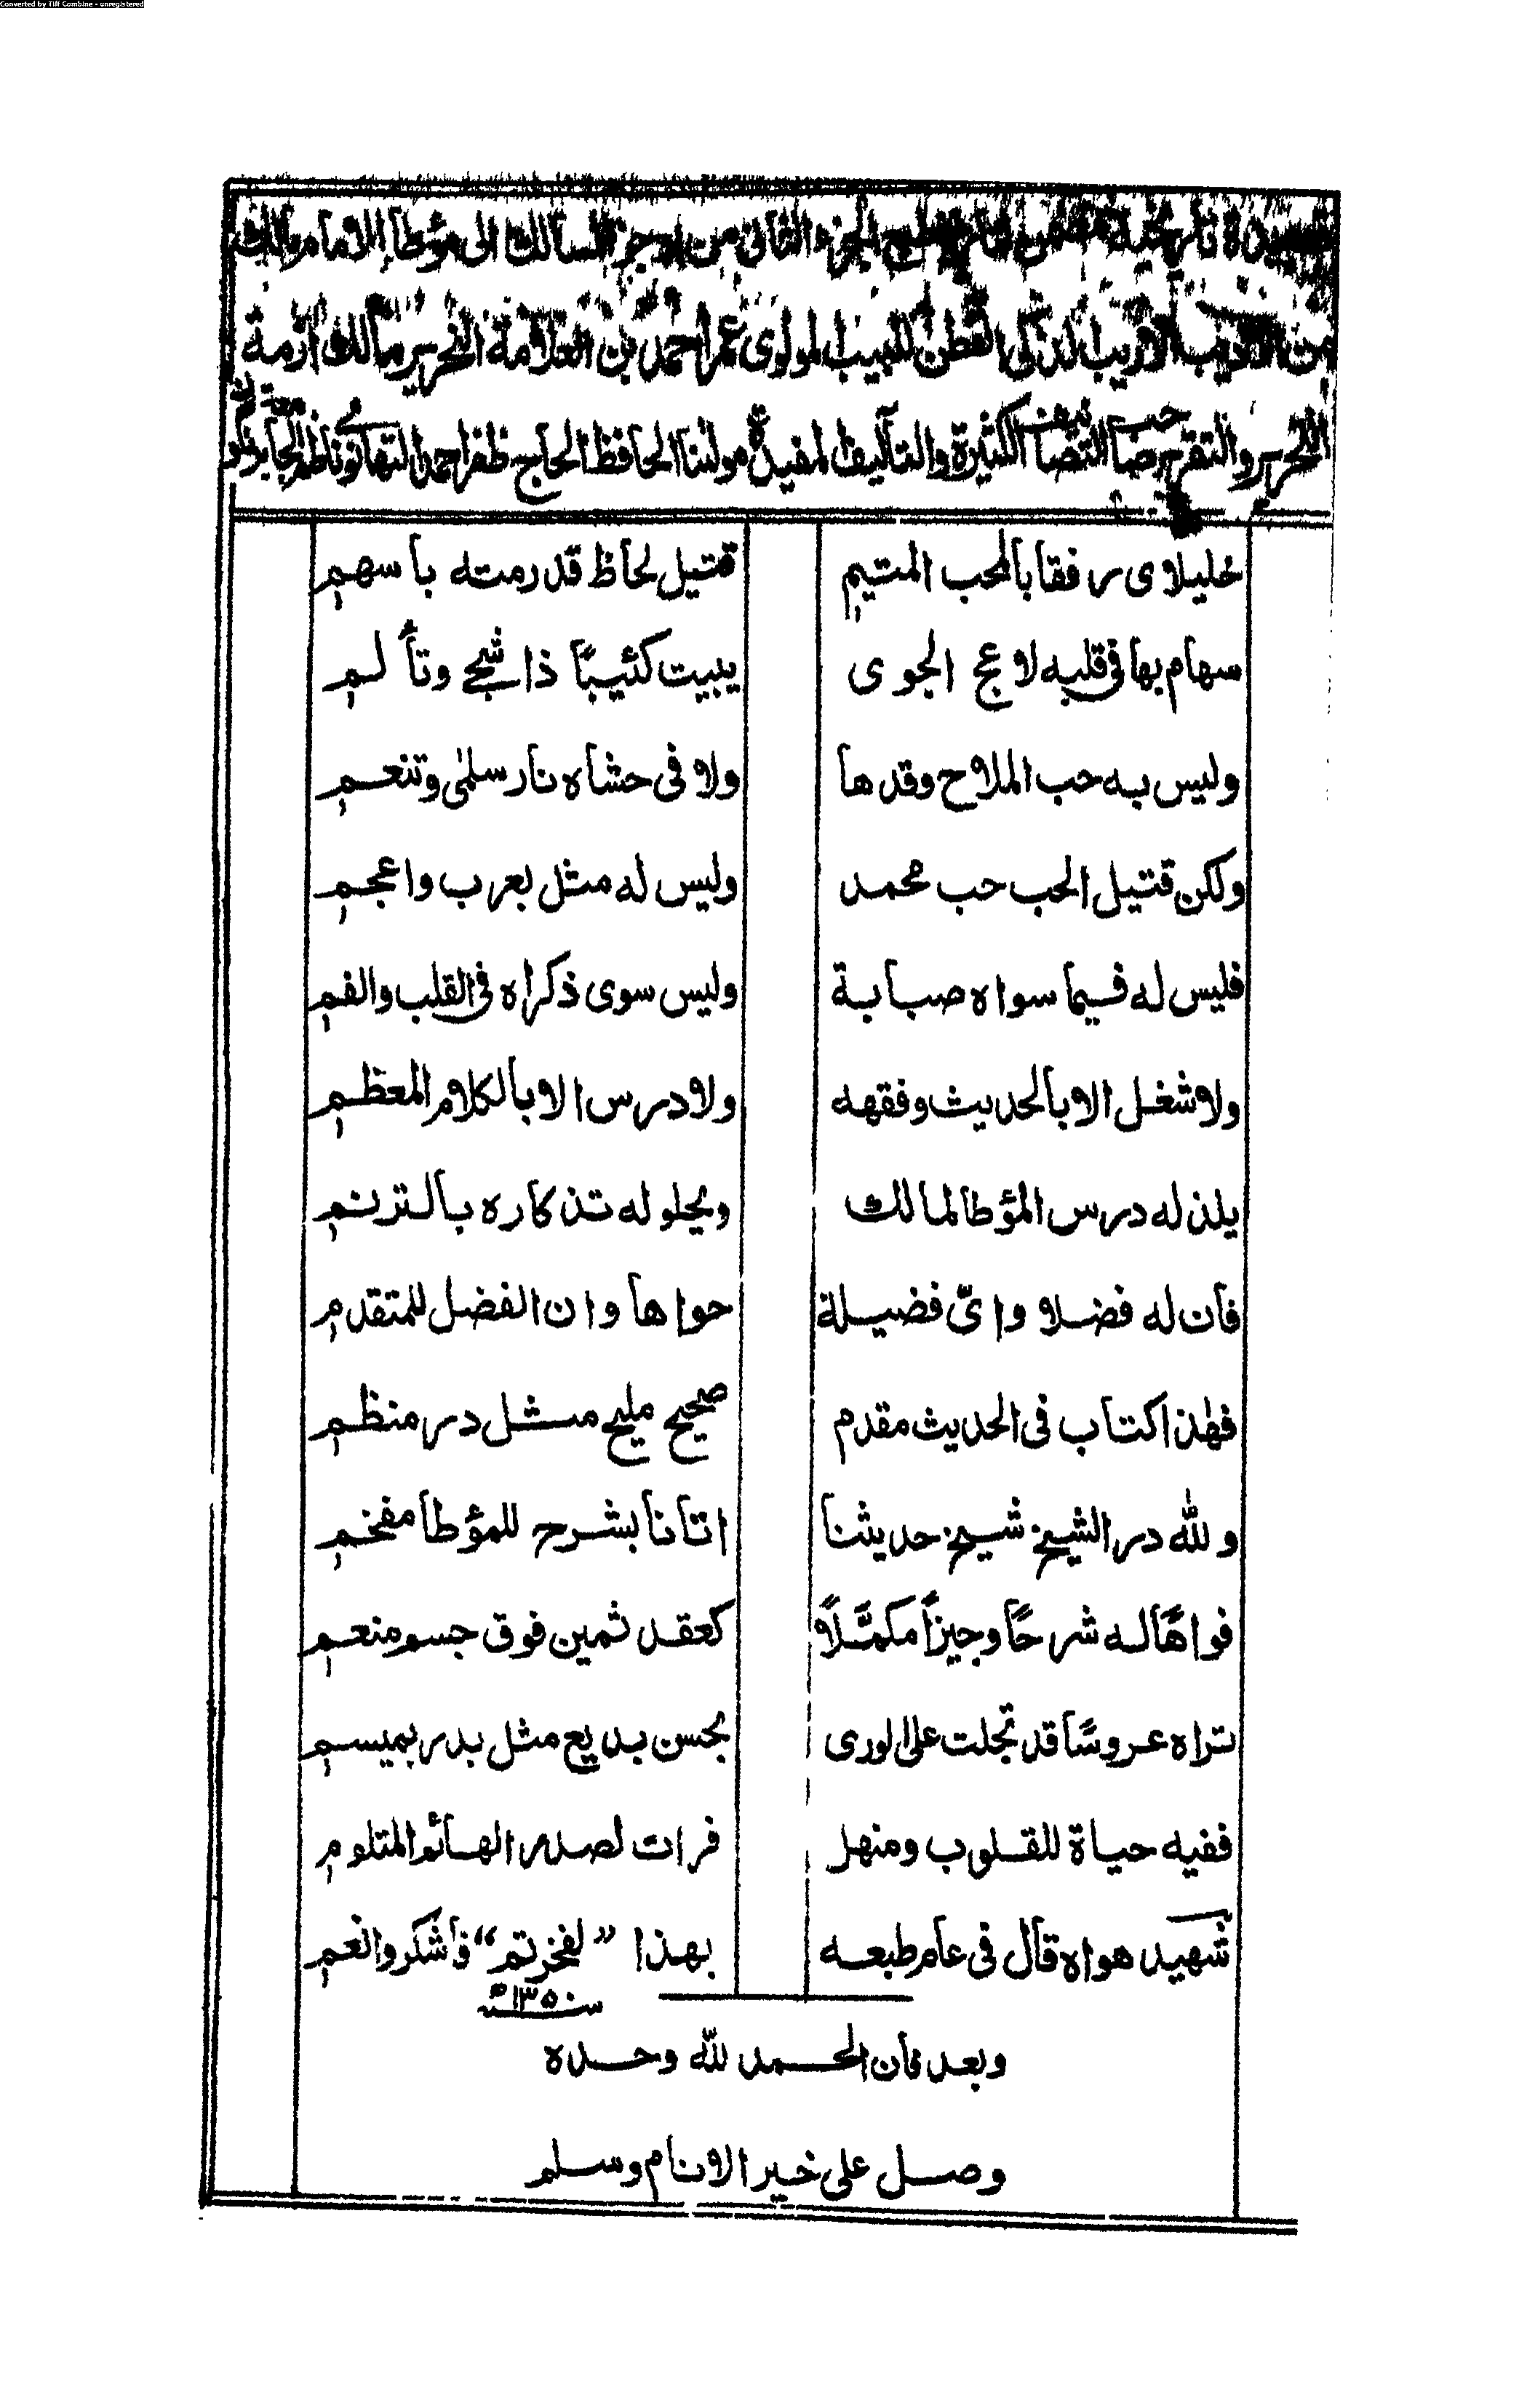 Converted by Tiff Combine - unregistered
الجزء الثانى من اوجز المسالك الى مؤطا الامام مالك
من الاديب الاريب الذكى الفطن اللبيب المولوى عمر احمد بن العلامة النحرير مالك ازمة
التحرير والتقرير صاحب التصانيف الكثيرة والتآليف المفيدة مولٰنا الحافظ الحاج ظفر احمد التهانوى
خليلاى رفقا بالمحب المتيم قتيل لحاظ قد رمته باسهم
سهام بها فى قلبه لاعج الجوى يبيت كئيبًا ذا شجٍ وتألم
وليس به حب الملاح وقدها ولا فى حشاه نار سلمٰى وتنعم
ولكن قتيل الحب حب محمد وليس له مثل بعرب واعجم
فليس له فيما سواه صبابة وليس سوى ذكراه فى القلب والفم
ولا شغل الا بالحديث وفقهه ولا درس الا بالكلام المعظم
يلذ له درس المؤطا لمالك ويحلو له تذكاره بالترنم
فان له فضلا واىّ فضيلة حواها وان الفضل للمتقدم
فهٰذا كتاب فى الحديث مقدم صحيح مليح مثل در منظم
ولله در الشيخ شيخ حديثنا اتانا بشرح للمؤطا مفخم
فواهًا له شرحًا وجيزًا مكمّلًا كعقد ثمين فوق جسم منعم
تراه عروسًا قد تجلت على الورى بحسن بديع مثل بدر بميسم
ففيه حياة للقلوب ومنهل فرات لصدر الهائم المتلوم
شهيد هواه قال فى عام طبعه بهذا ”لفخرتم“ فاشكروا نعم
سنـ۱۳۵۰ـه
وبعد فان الحمد لله وحده
وصل على خير الانام وسلم